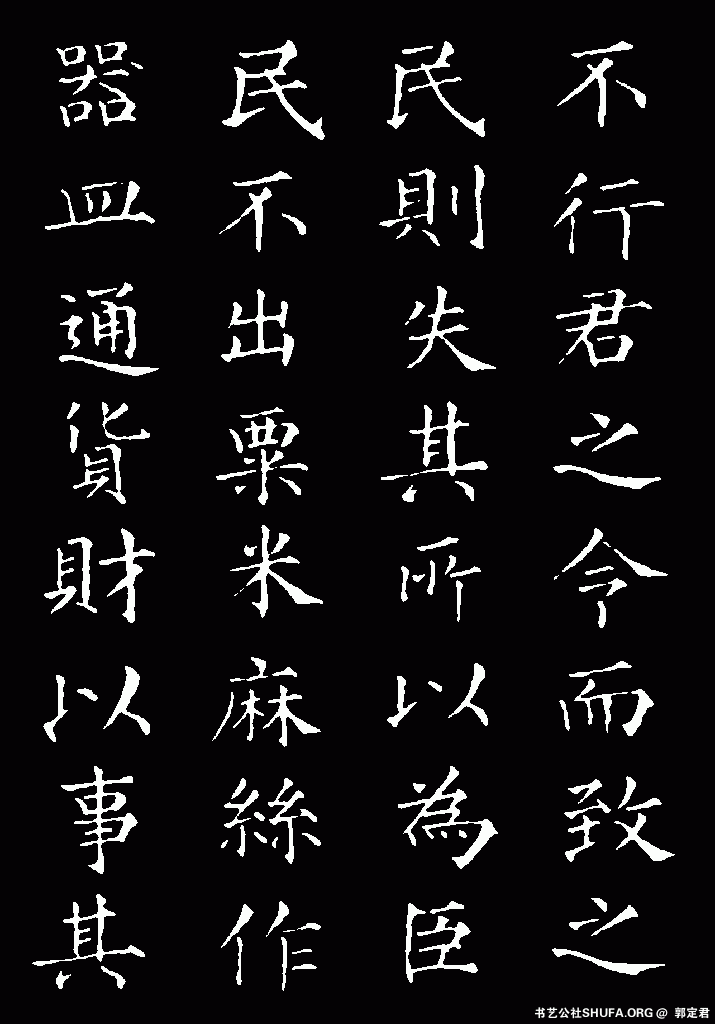 不行君之令而致之
民則失其所以為臣
民不出粟米麻絲作
器皿通貨財以事其
书艺公社SHUFA.ORG @ 郭定君